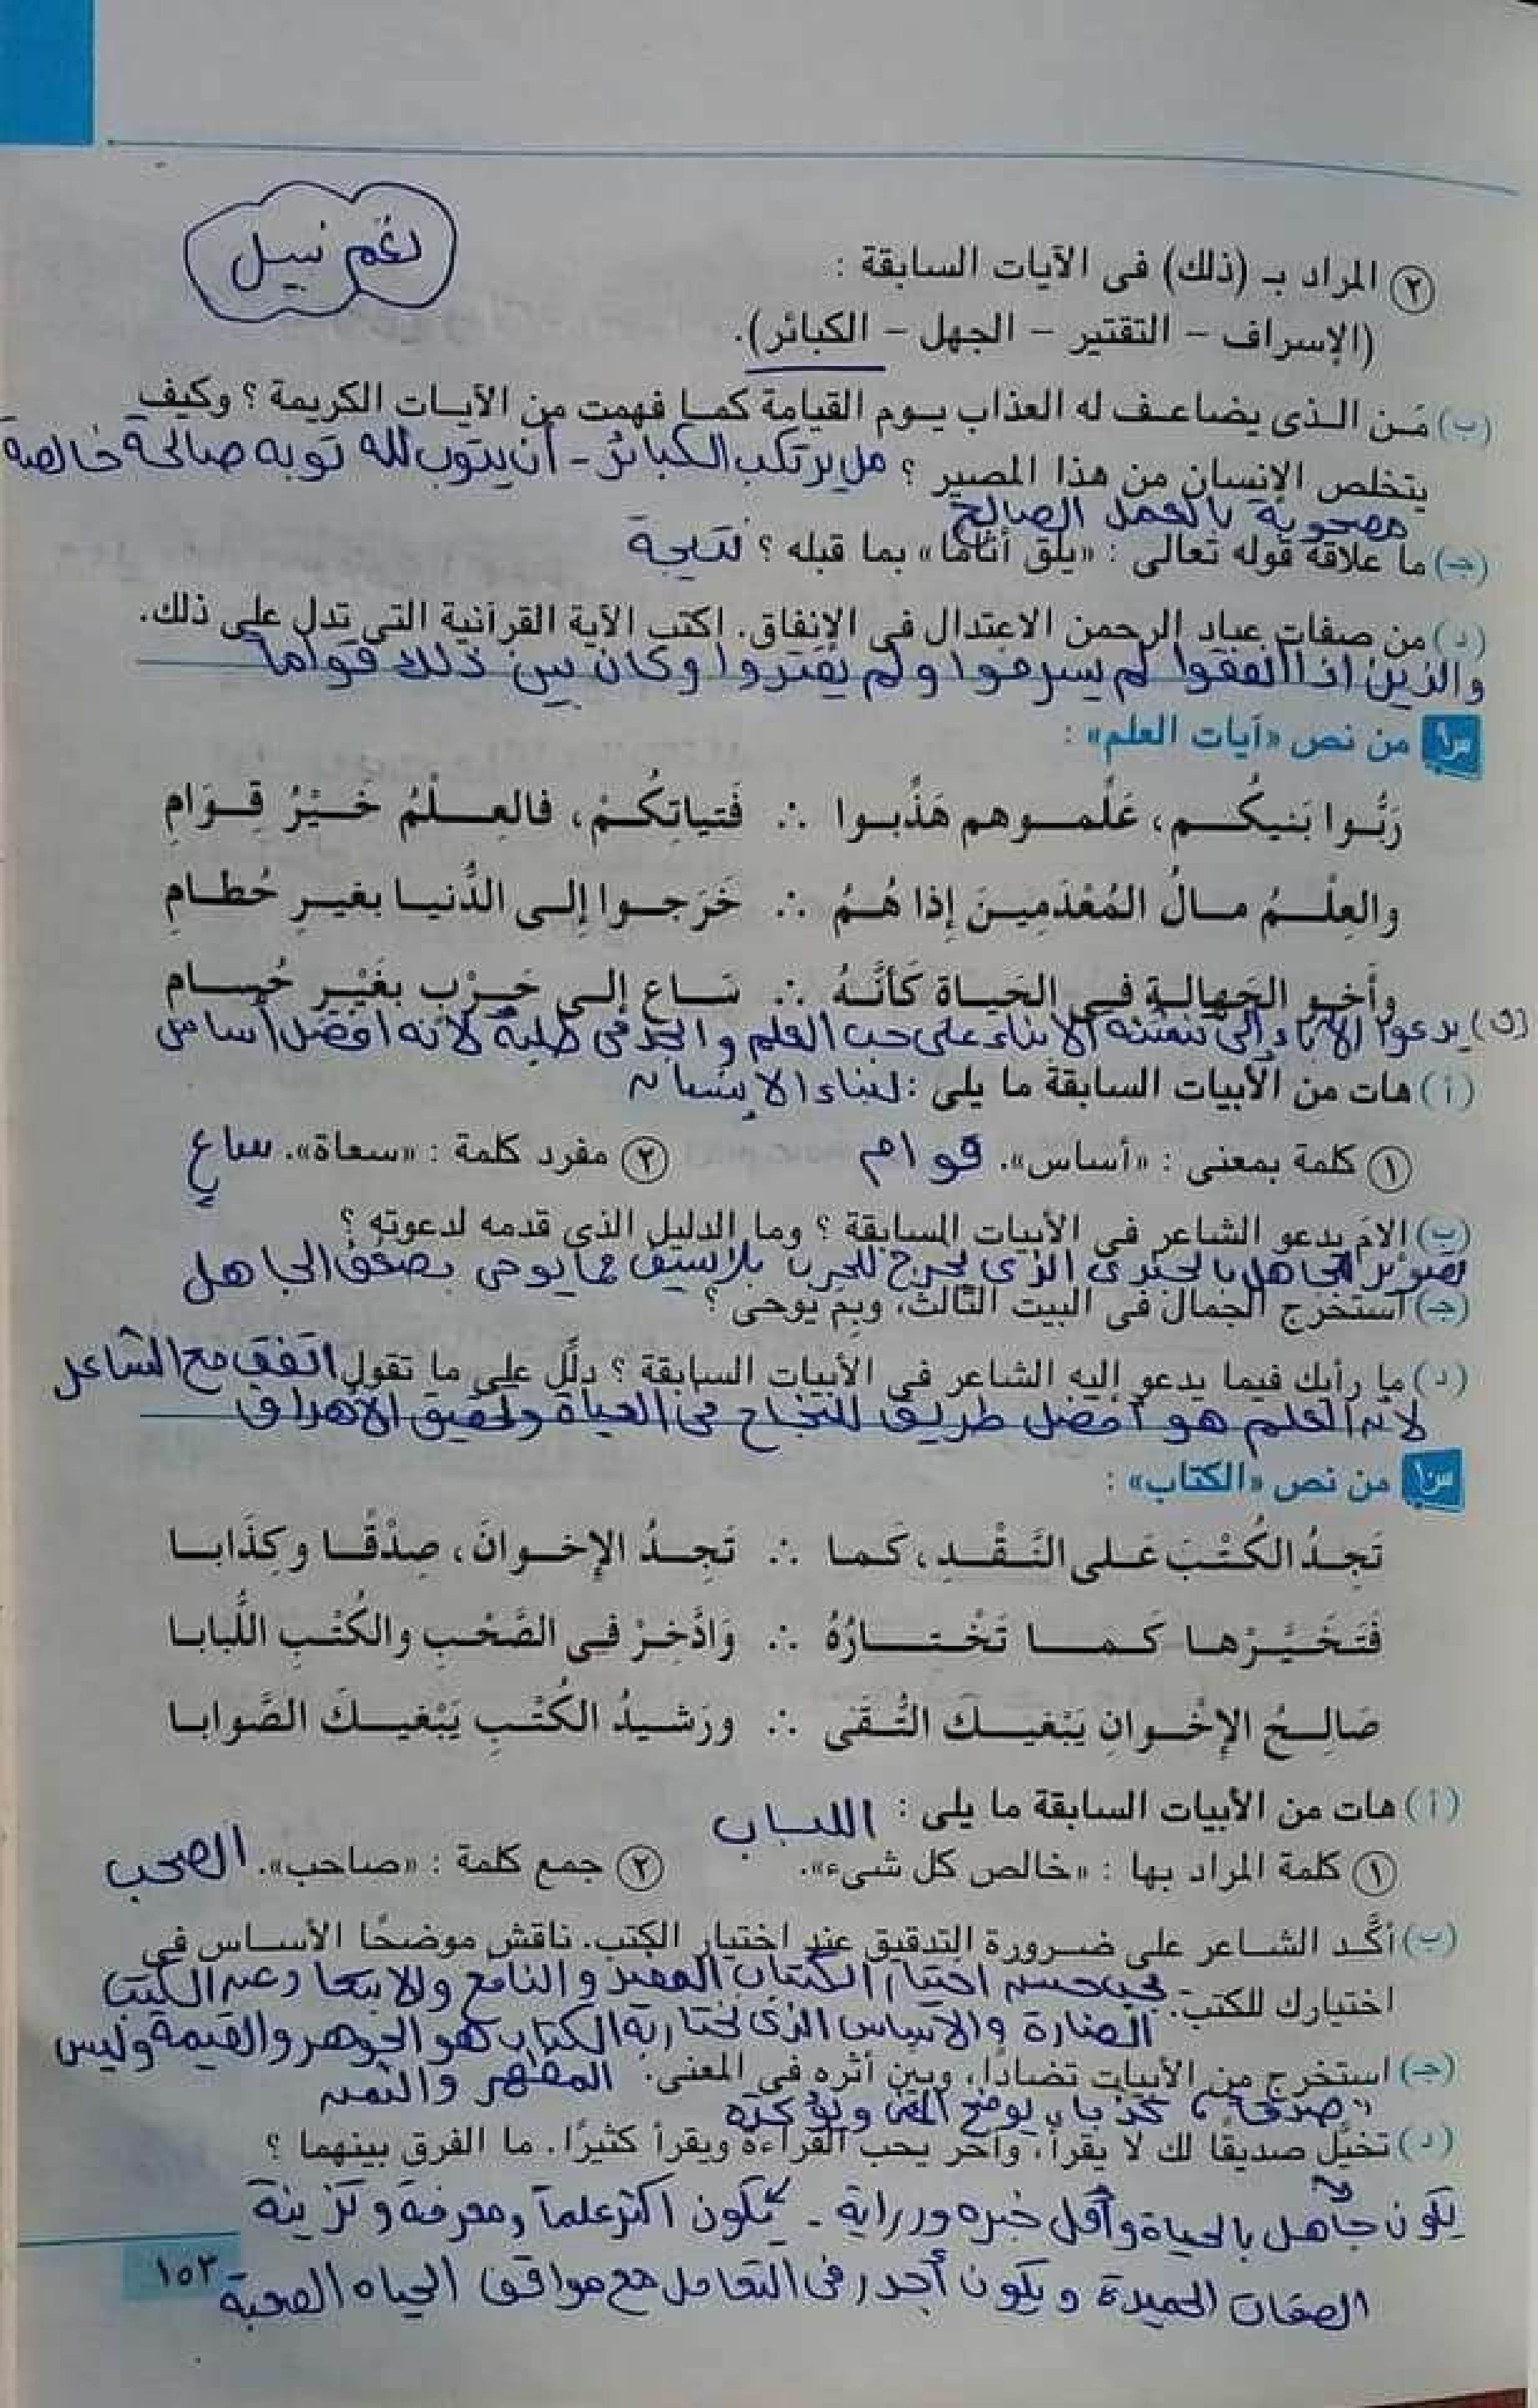 نغم نبيل
٢ المراد بـ (ذلك) فى الآيات السابقة :
(الإسراف - التقتير - الجهل - الكبائر).
(ب) مَن الذى يضاعف له العذاب يوم القيامة كما فهمت من الآيات الكريمة ؟ وكيف
يتخلص الإنسان من هذا المصير ؟ من يرتكب الكبائر - أن يتوب لله توبه صالحة خالصة
مصحوبة بالعمل الصالح
(جـ) ما علاقة قوله تعالى : «يلق أثامًا» بما قبله ؟ نتيجة
(د) من صفات عباد الرحمن الاعتدال فى الإنفاق. اكتب الآية القرآنية التى تدل على ذلك.
والذين اذا أنفقوا لم يسرفوا ولم يقتروا وكان بين ذلك قواما
س٩ من نص «آيات العلم» :
رَبُّوا بَنيكُم، عَلِّموهم هَذِّبوا ∴ فَتياتِكُمْ، فالعِلْمُ خَيْرُ قِوَامِ
والعِلْمُ مالُ المُعْدَمِينَ إِذا هُمُ ∴ خَرَجوا إِلى الدُّنيا بغيرِ حُطامِ
وأَخو الجَهالةِ فى الحَياةِ كَأنَّهُ ∴ سَاعٍ إلى حَرْبٍ بغَيْرِ حُسامِ
(ب) يدعوا الآباء إلى تنشئه الأبناء على حب العلم والجد فى طلبة لانه افضل أساس
(أ) هات من الأبيات السابقة ما يلى : لبناء الإنسان
١ كلمة بمعنى : «أساس». قوام ٢ مفرد كلمة : «سعاة». ساعٍ
(ب) إلامَ يدعو الشاعر فى الأبيات السابقة ؟ وما الدليل الذى قدمه لدعوته ؟
تصوير الجاهل بالجندى الذى يخرج للحرب بلا سيف مما يوحى بضعف الجاهل
(جـ) استخرج الجمال فى البيت الثالث، وبِمَ يوحى ؟
(د) ما رأيك فيما يدعو إليه الشاعر فى الأبيات السابقة ؟ دلِّل على ما تقول اتفق مع الشاعر
لأنه العلم هو أفضل طريق للنجاح فى الحياة وتحقيق الأهداف
س١٠ من نص «الكتاب» :
تَجِدُ الكُتْبَ عَلى النَّقْدِ، كَما ∴ تَجِدُ الإخوانَ، صِدْقًا وكِذَابا
فَتَخَيَّرْها كَما تَخْتارُهُ ∴ وَادَّخِرْ فى الصَّحْبِ والكُتْبِ اللُّبابا
صَالِحُ الإخْوانِ يَبْغيكَ التُّقَى ∴ ورَشيدُ الكُتْبِ يَبْغيكَ الصَّوابا
(أ) هات من الأبيات السابقة ما يلى : اللباب
١ كلمة المراد بها : «خالص كل شىء». ٢ جمع كلمة : «صاحب». الصحب
(ب) أكَّد الشاعر على ضرورة التدقيق عند اختيار الكتب. ناقش موضحًا الأساس فى
اختيارك للكتب. يجب حسن اختيار الكتاب المفيد والنافع والابتعاد عن الكتب
الضارة والأساس الذى نختار به الكتاب هو الجوهر والقيمة وليس
(جـ) استخرج من الأبيات تضادًا، وبين أثره فى المعنى. المظهر والثمن
"صدقا، كذبا" يوضح المعنى ويؤكده
(د) تخيَّل صديقًا لك لا يقرأ، وآخر يحب القراءة ويقرأ كثيرًا. ما الفرق بينهما ؟
يكون جاهل بالحياة وأقل خبره ودراية - يكون اكثر علماً ومعرفة وتزينة
الصفات الحميدة ويكون أجدر فى التعامل مع مواقف الحياه الصعبة
١٥٣